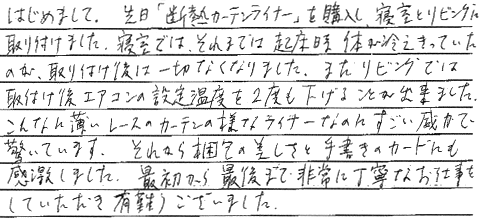 はじめまして。 先日「断熱カーテンライナー」を購入し寝室とリビングに
取り付けました。寝室では、それまでは起床時体が冷えきっていた
のが、取り付け後は一切なくなりました。またリビングでは
取付け後エアコンの設定温度を2度も下げることが出来ました。
こんなに薄いレースのカーテンの様なライナーなのにすごい威力で
驚いています。 それから梱包の美しさと手書きのカードにも
感激しました。 最初から最後まで非常に丁寧なお仕事を
していただき有難うございました。